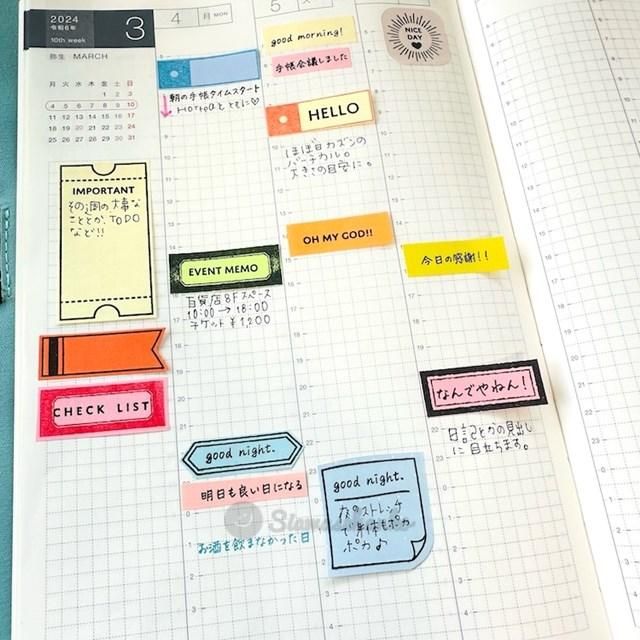 2024
令和6年
10th week
3
弥生 MARCH
月 火 水 木 金 土 日
1 2 3
4 5 6 7 8 9 10
11 12 13 14 15 16 17
18 19 20 21 22 23 24
25 26 27 28 29 30 31
IMPORTANT
その週の大事な
こととか、TODO
など!!
CHECK LIST
4 月 MON
朝の手帳タイムスタート
とともに♡
EVENT MEMO
百貨店8F スペース
10:00→18:00
チケット ¥1,200
good night.
明日も良い日になる
お酒を飲まなかった日
5
good morning!
手帳会議しました
HELLO
ほぼ日カズンの
バーチカル。
大きさの目安に。
OH MY GOD!!
good night.
夜のストレッチ
で身体もポカ
ポカ♪
NICE
DAY
今日の感謝!!
なんでやねん!
日記とかの見出し
に目立ちます。